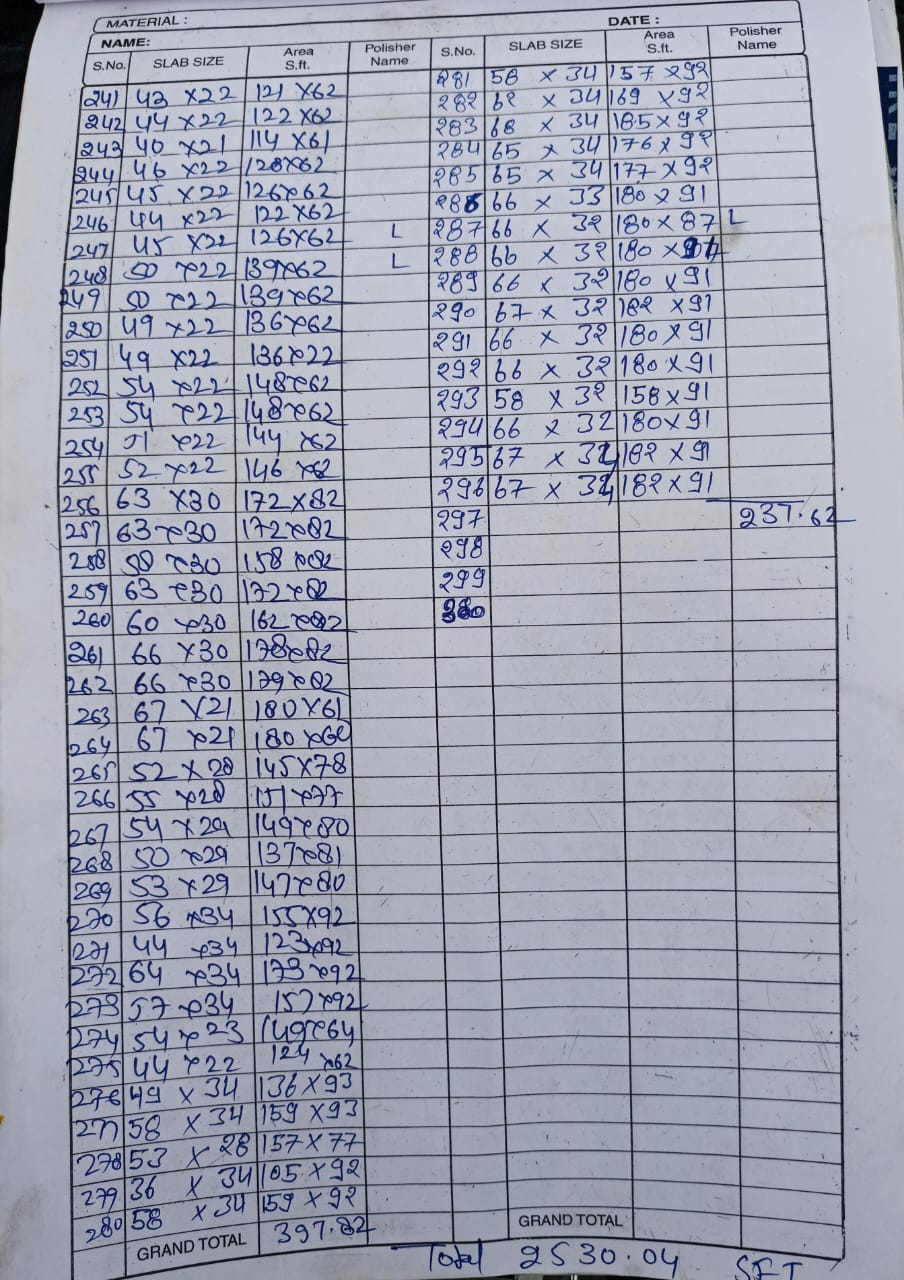 MATERIAL :
DATE :
NAME:
S.No. SLAB SIZE Area S.ft. Polisher Name
241 43 x 22 121 x 62
242 44 x 22 122 x 62
243 40 x 21 114 x 61
244 46 x 22 128 x 62
245 45 x 22 126 x 62
246 44 x 22 122 x 62
247 45 x 22 126 x 62 L
248 50 x 22 139 x 62 L
249 50 x 22 139 x 62
250 49 x 22 136 x 62
251 49 x 22 136 x 22
252 54 x 22 148 x 62
253 54 x 22 148 x 62
254 51 x 22 144 x 62
255 52 x 22 146 x 62
256 63 x 30 172 x 82
257 63 x 30 172 x 82
258 58 x 30 158 x 82
259 63 x 30 172 x 82
260 60 x 30 162 x 82
261 66 x 30 178 x 82
262 66 x 30 179 x 82
263 67 x 21 180 x 61
264 67 x 21 180 x 60
265 52 x 28 145 x 78
266 55 x 28 151 x 77
267 54 x 29 149 x 80
268 50 x 29 137 x 81
269 53 x 29 147 x 80
270 56 x 34 155 x 92
271 44 x 34 123 x 92
272 64 x 34 173 x 92
273 57 x 34 157 x 92
274 54 x 23 149 x 64
275 44 x 22 124 x 62
276 49 x 34 136 x 93
277 58 x 34 159 x 93
278 53 x 28 157 x 77
279 36 x 34 105 x 92
280 58 x 34 159 x 92
GRAND TOTAL 397.82
S.No. SLAB SIZE Area S.ft. Polisher Name
281 58 x 34 157 x 92
282 62 x 34 169 x 92
283 68 x 34 185 x 92
284 65 x 34 176 x 92
285 65 x 34 177 x 92
286 66 x 33 180 x 91
287 66 x 32 180 x 87 L
288 66 x 32 180 x
289 66 x 32 180 x 91
290 67 x 32 182 x 91
291 66 x 32 180 x 91
292 66 x 32 180 x 91
293 58 x 32 158 x 91
294 66 x 32 180 x 91
295 67 x 182 x 91
296 67 x 182 x 91
297 237.62
298
299
GRAND TOTAL
Total 2530.04 SFT